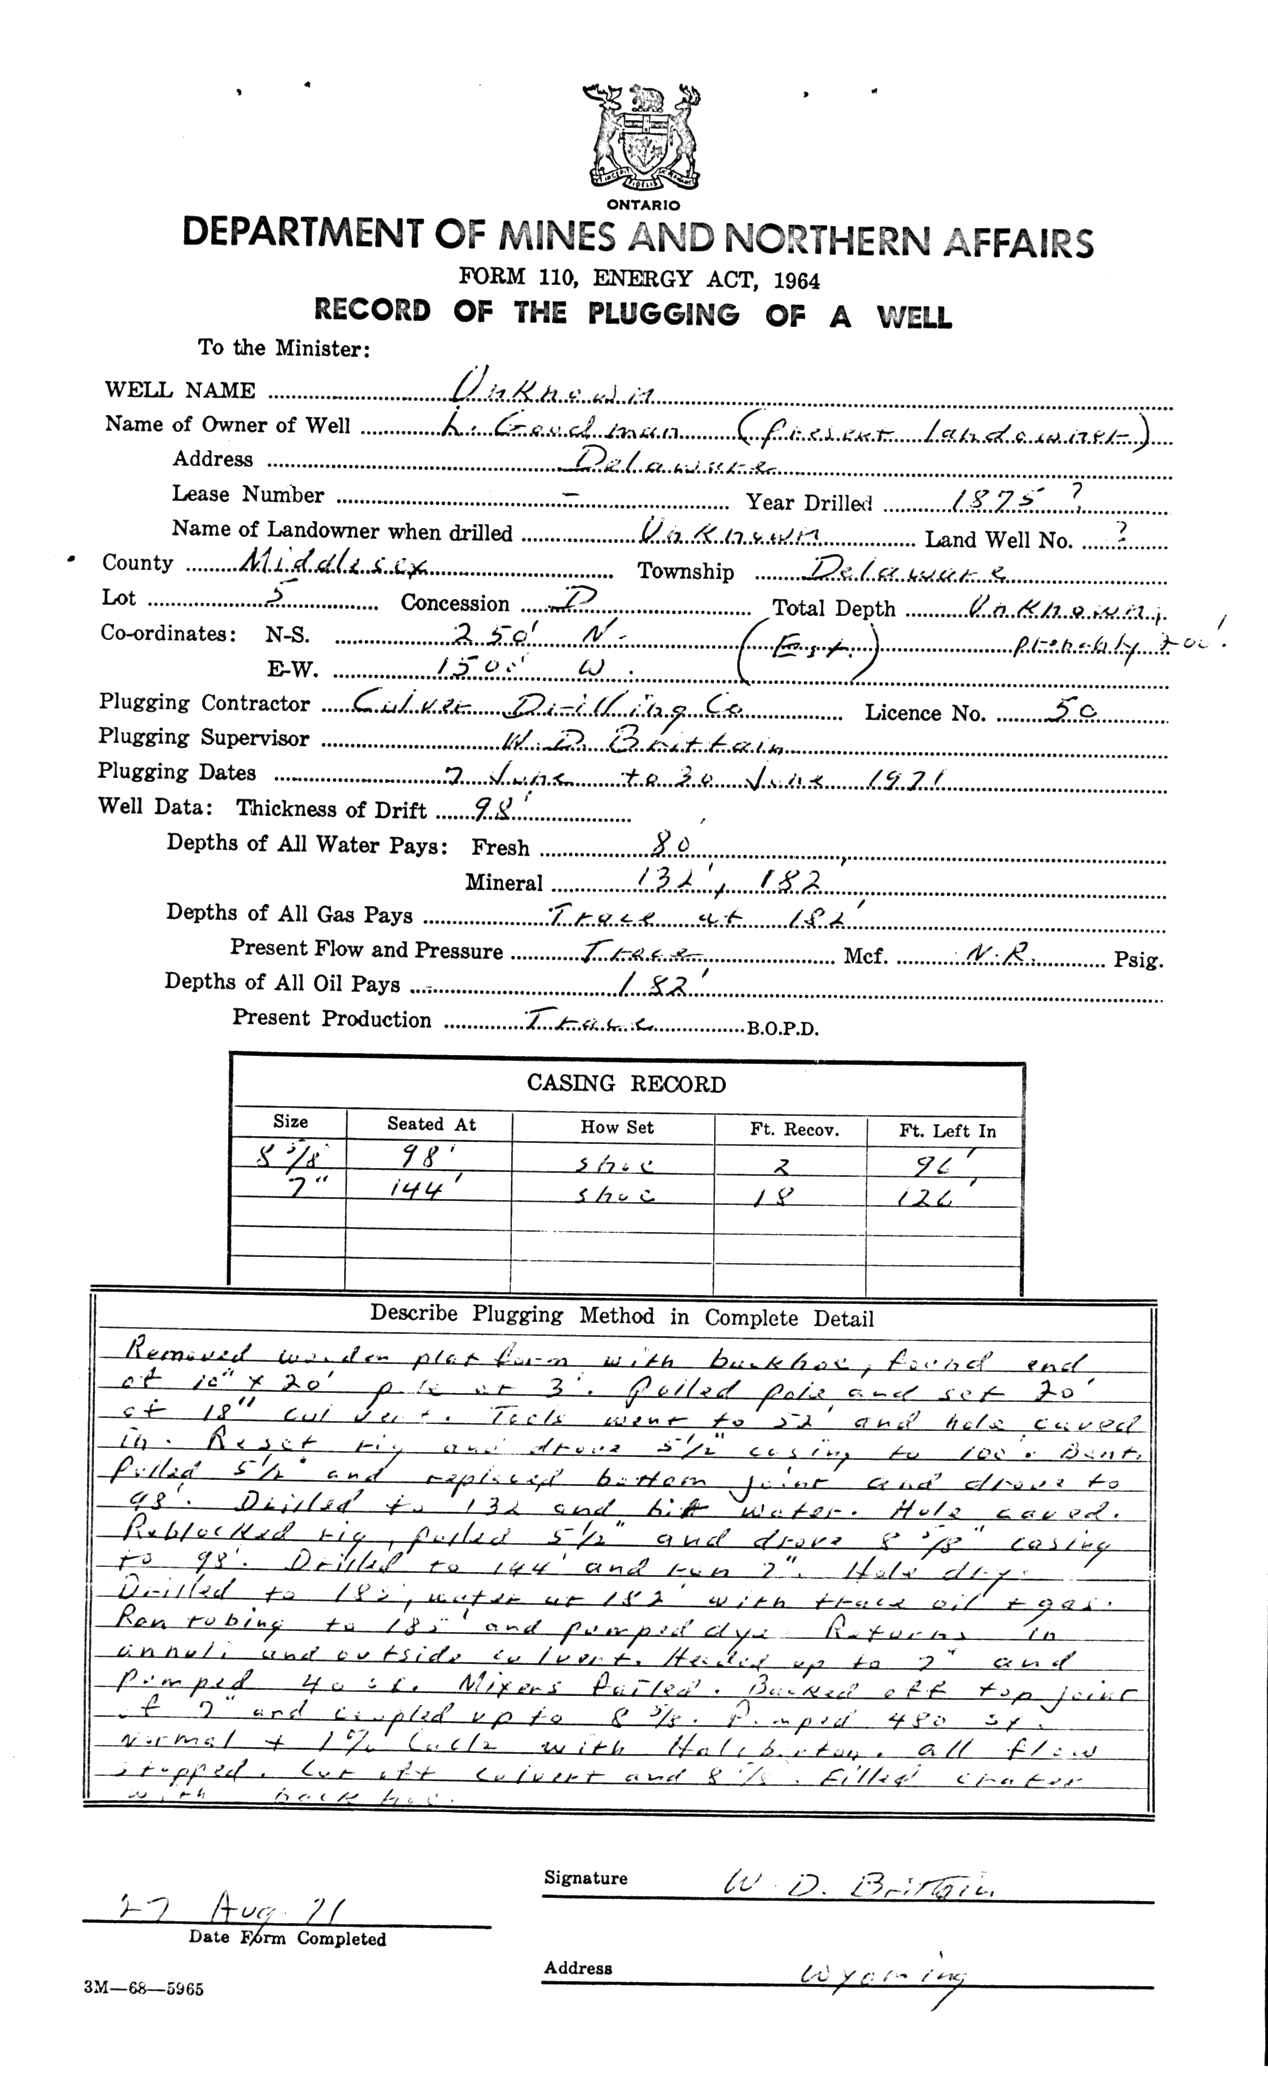 ONTARIO
DEPARTMENT OF MINES AND NORTHERN AFFAIRS
FORM 110, ENERGY ACT, 1964
RECORD OF THE PLUGGING OF A WELL
To the Minister:
WELL NAME Unknown
Name of Owner of Well L. Goodman (present landowner)
Address Delaware
Lease Number – Year Drilled 1875 ?
Name of Landowner when drilled Unknown Land Well No. ?
County Middlesex Township Delaware
Lot 5 Concession D Total Depth Unknown,
Co-ordinates: N-S. 250' N. (Est.) probably 200'.
E-W. 1500' W.
Plugging Contractor Culver Drilling Co Licence No. 50
Plugging Supervisor W. D. Brittain
Plugging Dates 7 June to 30 June 1971
Well Data: Thickness of Drift 98'
Depths of All Water Pays: Fresh 80'
Mineral 132', 182'
Depths of All Gas Pays Trace at 182'
Present Flow and Pressure Trace Mcf. N.R. Psig.
Depths of All Oil Pays 182'
Present Production Trace B.O.P.D.
CASING RECORD
Size Seated At How Set Ft. Recov. Ft. Left In
8 5/8 98' shoe 2 96'
7" 144' shoe 18 126'
Describe Plugging Method in Complete Detail
Removed wooden platform with backhoe, found end
of 10" x 20' pole at 3'. Pulled pole and set 20'
of 18" culvert. Tools went to 52' and hole caved
in. Reset rig and drove 5½" casing to 100'. Bent.
Pulled 5½" and replaced bottom joint and drove to
98'. Drilled to 132 and hit water. Hole caved.
Reblocked rig, pulled 5½" and drove 8 5/8" casing
to 98'. Drilled to 144' and ran 7". Hole dry.
Drilled to water at 182' with trace oil + gas.
Ran tubing to and pumped dye. Returns in
annuli and outside culvert. Headed up to 7" and
pumped 40 sx. Mixers failed. Backed off top joint
of 7" and coupled up to 8 5/8. Pumped 480 sx.
Normal + 1% Cacl2 with Haliburton. All flow
stopped. Cut off culvert and 8 5/8. Filled crater
with backhoe.
Signature W. D. Brittain
27 Aug. 71
Date Form Completed
Address Wyoming
3M—68—5965